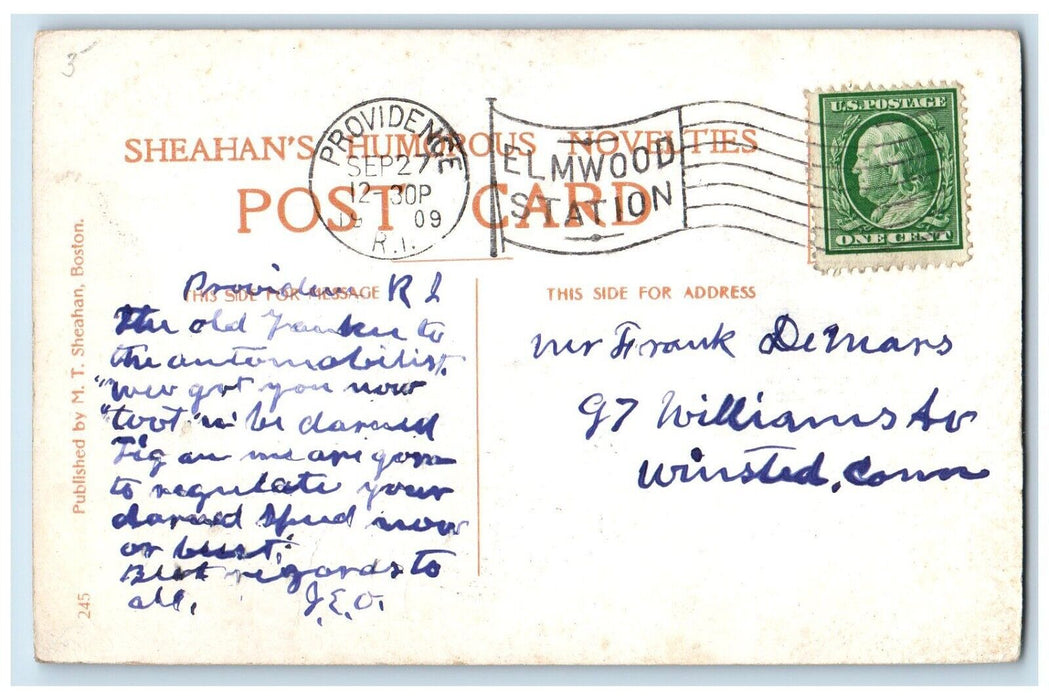 3
SHEAHAN'S HUMOROUS NOVELTIES
POST CARD
PROVIDENCE
SEP 27
12-30P
19 09
R.I.
ELMWOOD
STATION
U.S. POSTAGE
ONE CENT
Published by M. T. Sheahan, Boston.
245
THIS SIDE FOR MESSAGE
Providence R I
The old Yankee to
the automobilist.
"We got you now
"toot 'n' be darned
me are gon
to regulate your
darned speed now
or bust."
Best regards to
all, J.E.O.
THIS SIDE FOR ADDRESS
Mr Frank DeMars
97 Williams Av
Winsted, Conn